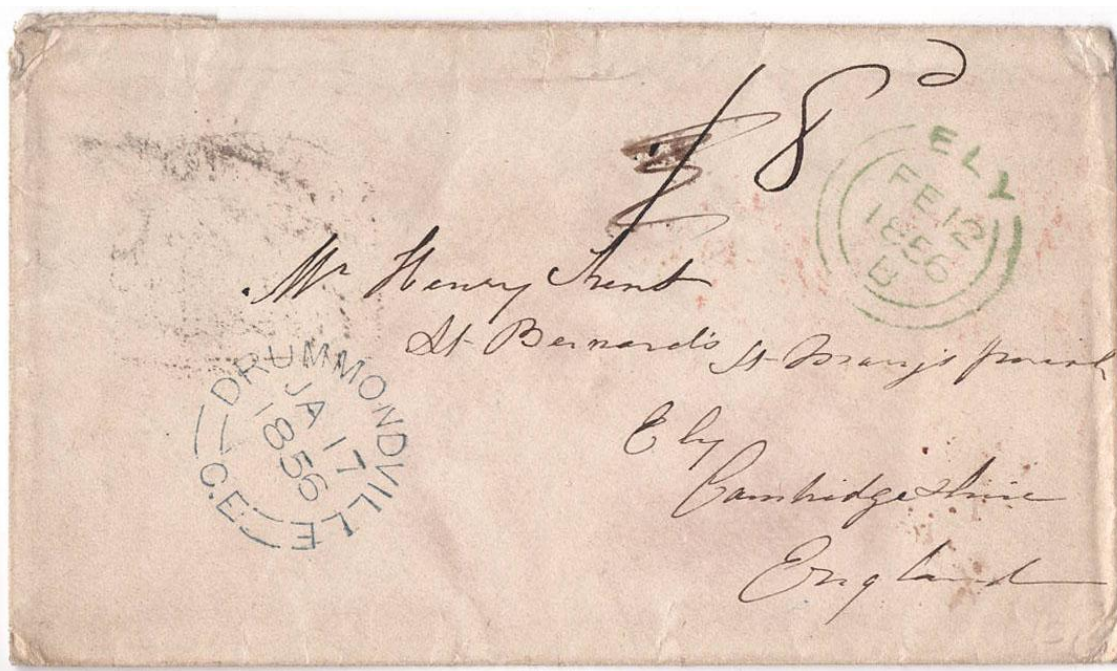 8d
ELY
FE 12
1856
B
Mr Henry
St Bernard's St Mary's parish
Ely
Cambridgeshire
England
DRUMMONDVILLE
JA 17
1856
C.E.